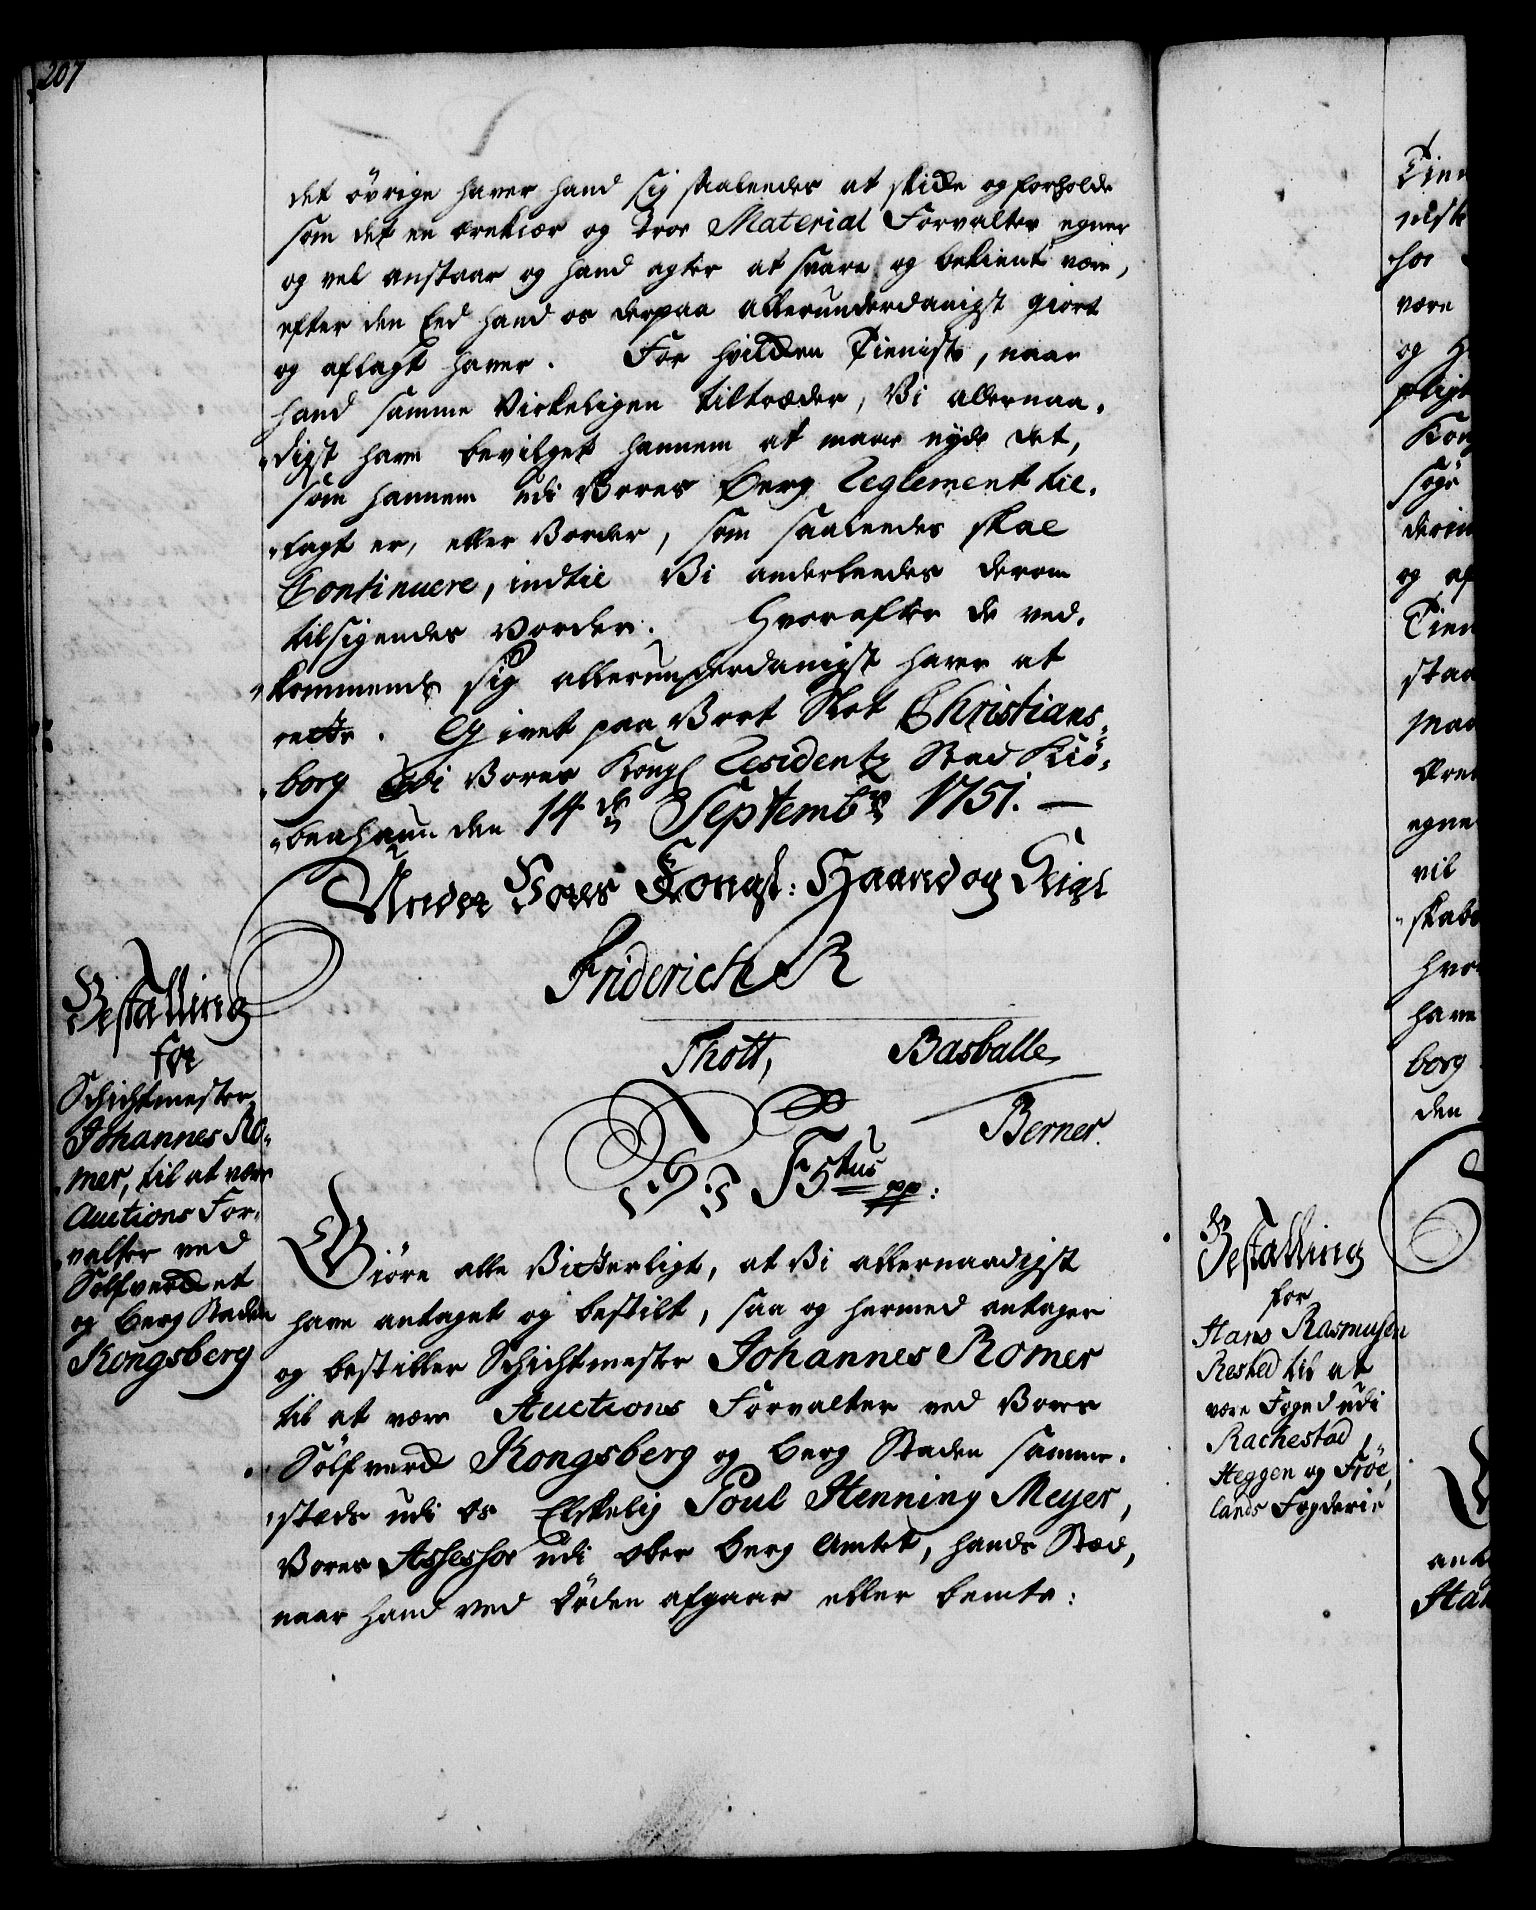 207
det övrige haver hand sig saaledes at skicke og forholde
som det en ærekiær og troe Material Forvalter egner
og vel anstaar og hand agter at svare og bekient være,
efter den Eed hand os derpaa allerunderdanigst giort
og aflagt haver. For hvilcken Tieniste, naar
hand samme virkeligen tiltræder, Vi allernaa-
digst have bevilget hannem at maae nyde det,
som hannem udi Vores Berg Reglement til-
lagt er, eller Vorder, som saaledes skal
Continuere, indtil Vi anderledes derom
tilsigendes vorder. Hvorefter de ved-
kommende sig allerunderdanigst haver at
rette. Givet paa Vort Slot Christians-
borg udi Vores Kongl Residentz Stad Kiö-
benhaun den 14de Septembr 1751. —
Under Vores Kongl: Haand og Seigl
Friderich R
Thott, Basballe
Berner.
Bestalling
for
Schichtmester
Johannes Ro-
mer, til at være
Auctions For-
valter ved
Sölfvercket
og Berg Staden
Kongsberg
Vi F5tus pp:
Giöre alle Vitterligt, at Vi allernaadigst
have antaget og bestilt, saa og hermed antager
og bestiller Schichtmester Johannes Romer
til at være Auctions Forvalter ved Vores
Sölfverck Kongsberg og Berg Staden samme-
steds udi os Elskelig Poul Henning Meyer,
Vores Assessor udi Ober Berg Amtet, hands Stæd,
naar hand ved Döden afgaar eller bemte:
Bestalling
for
Hans Rasmusen
Rested til at
være Foged udi
Rachestad,
Heggen og Fröe
lands Fogderie
Tien
være
og
Kon
söge
og af
Tien
staa
egne
vil
have
borg
den